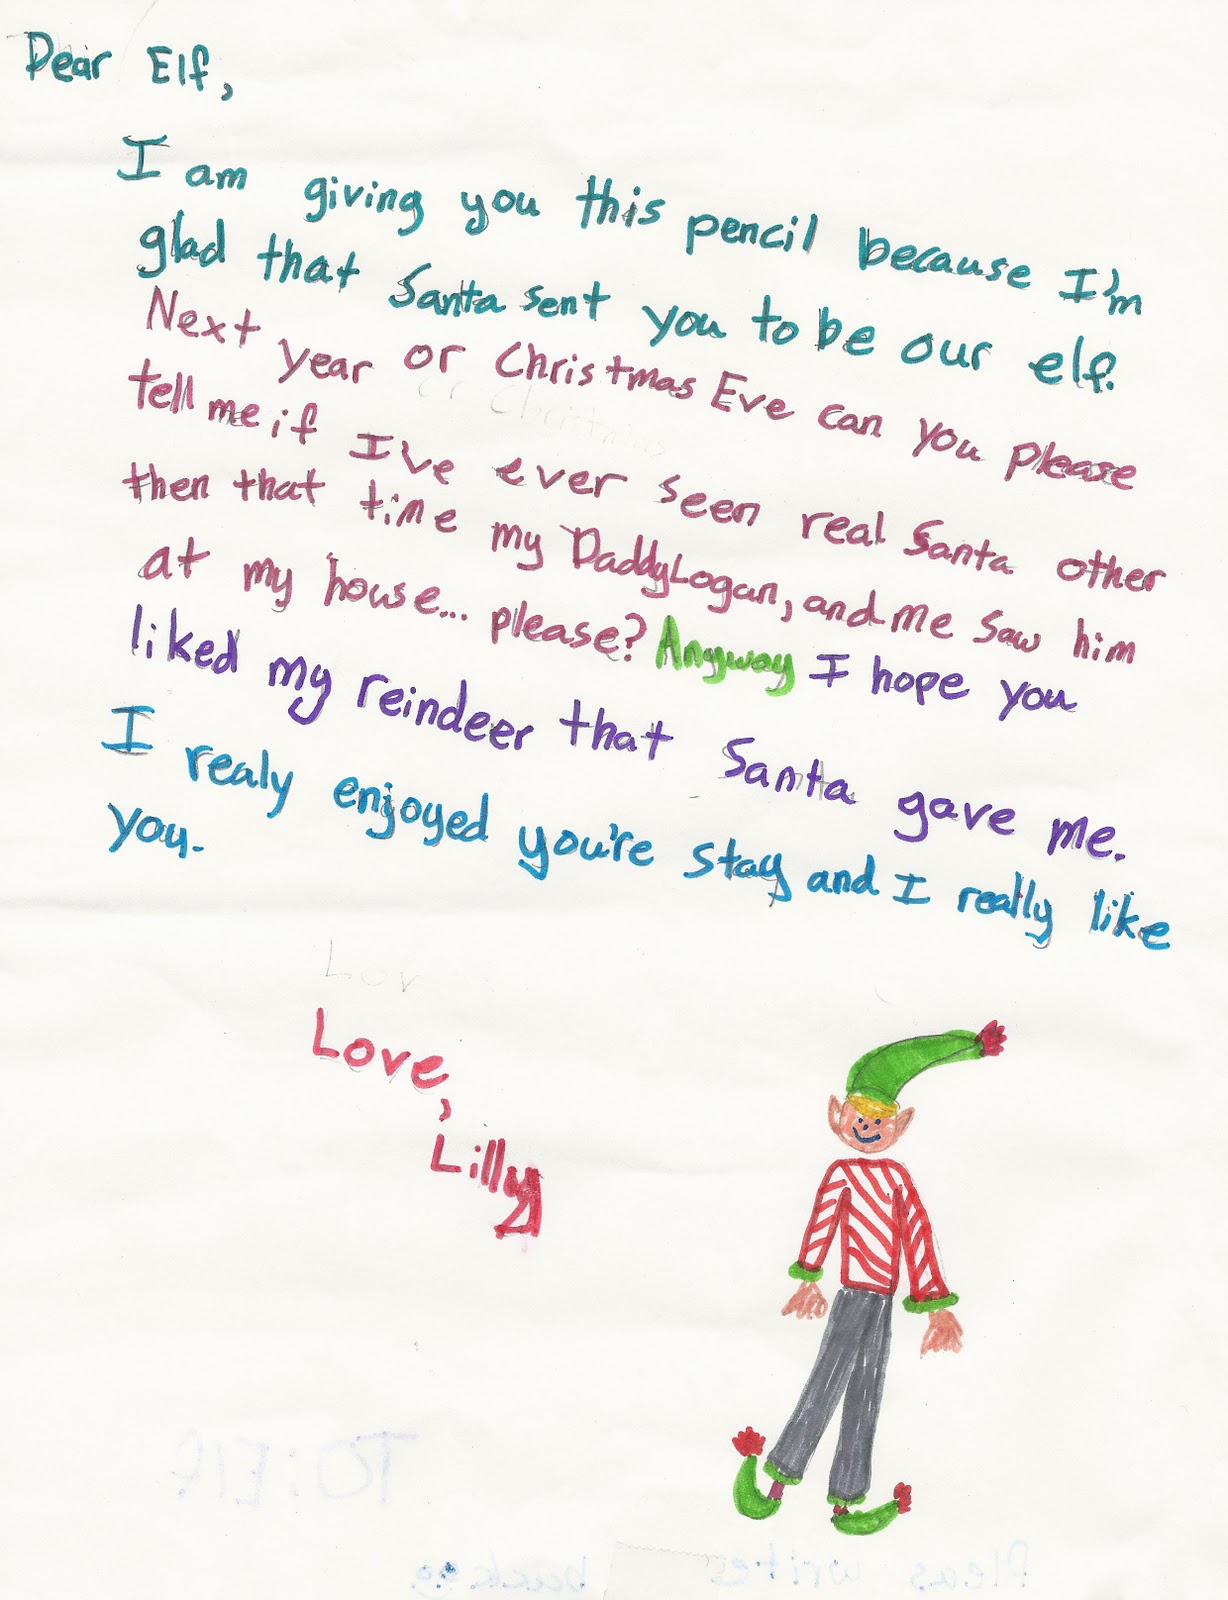 Dear Elf,
I am giving you this pencil because I'm
glad that Santa sent you to be our elf.
Next year or Christmas Eve can you please
tell me if I've ever seen real Santa other
then that time my Daddy Logan, and me saw him
at my house... please? Anyway I hope you
liked my reindeer that Santa gave me.
I realy enjoyed you're stay and I really like
you.
Lov
Love,
Lilly
TO: Elf
Pleas write back